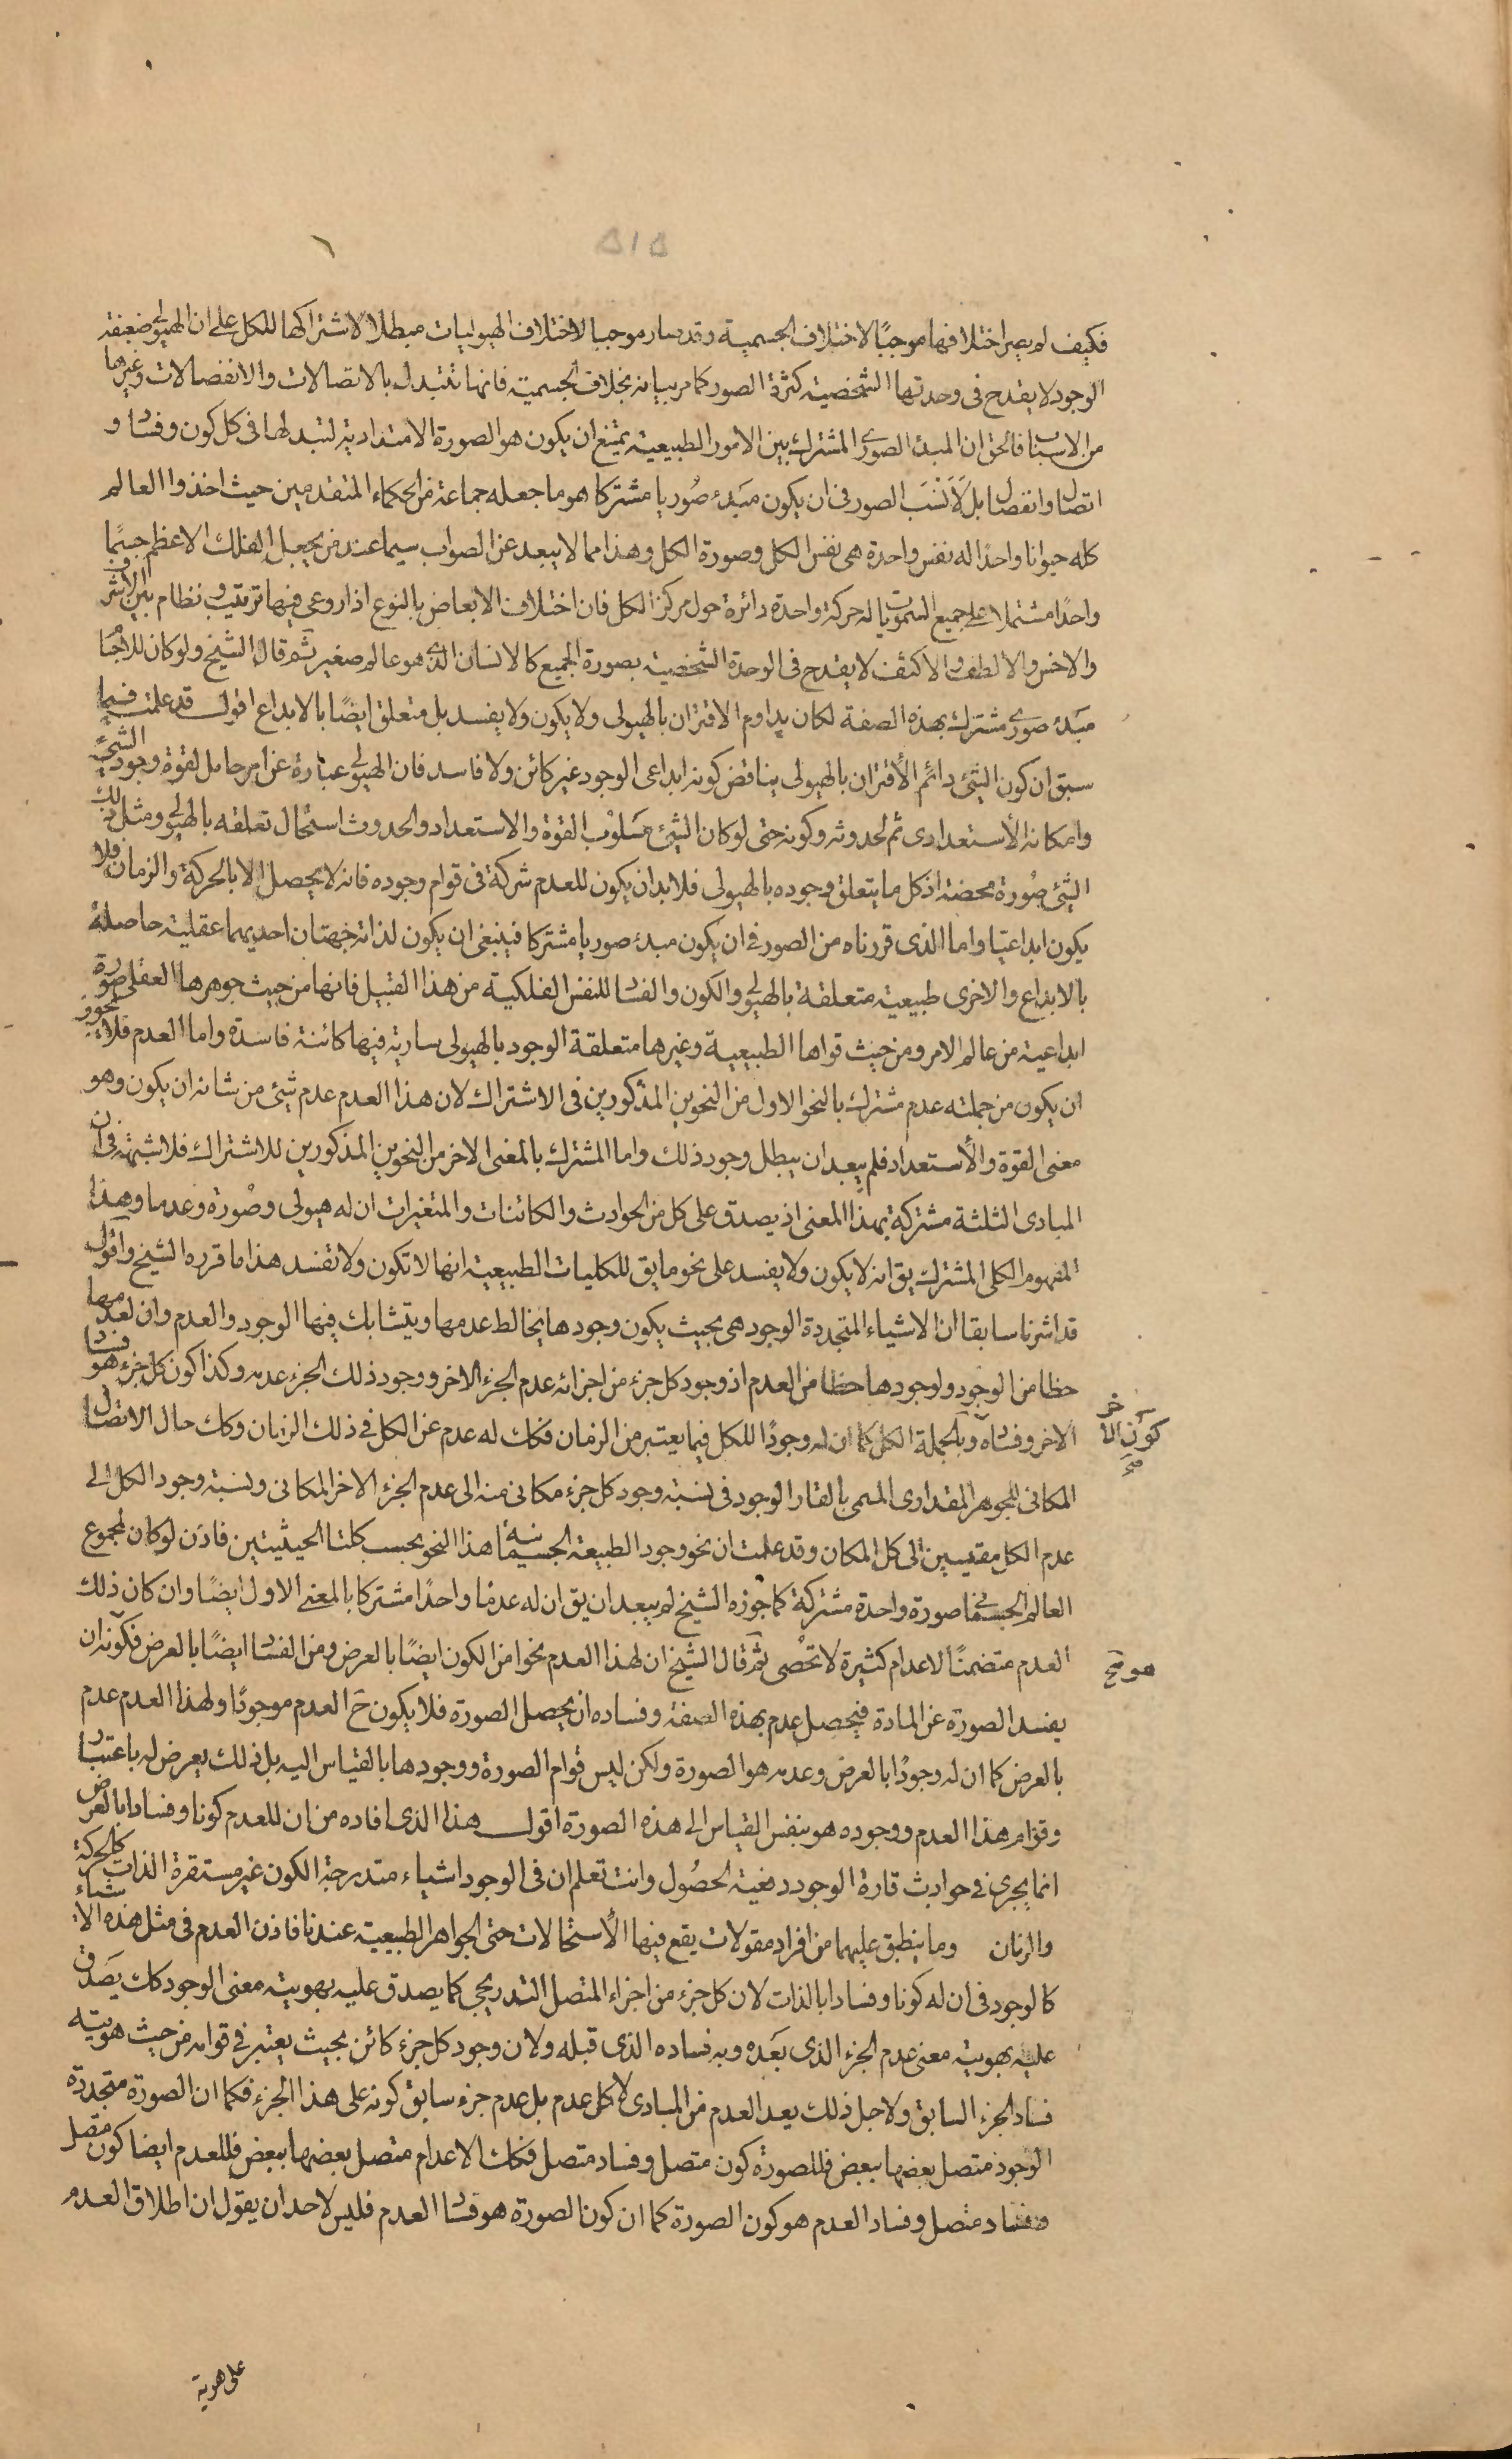 ٥١٥
فكيف لم يصر اختلافها موجبًا لاختلاف الجسمية وقد صار موجبا لاختلاف الهيوليات مبطلا لاشتراكها للكل على ان الهيولى ضعيفة
الوجود لا يقدح فى وحدتها الشخصية كثرة الصور كما مر بيانه بخلاف الجسمية فانها تتبدل بالاتصالات والانفصالات وغيرها
من الاسباب فالحق ان المبدء الصورى المشترك بين الامور الطبيعية يمتنع ان يكون هو الصورة الامتدادية لتبدلها فى كل كون وفساد و
اتصال وانفصال بل لَانْسَب الصور فى ان يكون مبدء صُوريا مشتركا هو ما جعله جماعة من الحكماء المتقدمين حيث اخذوا العالم
كله حيوانا واحدًا له نفس واحدة هى نفس الكل وصورة الكل وهذا مما لا يبعد عن الصواب سيما عند من يجعل الفلك الاعظم جسمًا
واحدًا مشتملا على جميع السموات يا له حركة واحدة دائرة حول مركز الكل فان اختلاف الابعاض بالنوع اذا روعى فيها ترتيب ونظام بين الاشرف
والاخس والالطف والاكثف لا يقدح فى الوحدة الشخصية بصورة الجميع كالانسان الذى هو عالم صغير ثم قال الشيخ ولو كان للاجسام
مبدء صورى مشترك بهذه الصفة لكان يداوم الاقتران بالهيولى ولا يكون ولا يفسد بل متعلق ايضًا بالابداع اقول قد علمت فيما
سبق ان كون الشئ دائم الأقتران بالهيولى يناقض كونه ابداعى الوجود غير كائن ولا فاسد فان الهيولى عبارة عن امر حامل لقوة وجود الشئ
وامكانه الأستعدادى ثم لحدوثه وكونه حتى لو كان الشئ مَسلوْب القوة والاستعداد والحدوث استحال تعلقه بالهيولى ومثل ذلك
الشئ صُورة محضة اذ كل ما يتعلق وجوده بالهيولى فلا بد ان يكون للعدم شركة فى قوام وجوده فانه لا يحصل الا بالحركة والزمان ولا
يكون ابداعيّا واما الذى قررناه من الصور فى ان يكون مبدء صوريا مشتركا فينبغى ان يكون لذاته جهتان احديهما عقلية حاصلة
بالابداع والاخرى طبيعية متعلقة بالهيولى والكون والفساد للنفس الفلكية من هذا القبيل فانها من حيث جوهرها العقلى صورة
ابداعية من عالم الامر ومن حيث قواها الطبيعية وغيرها متعلقة الوجود بالهيولى سارية فيها كائنة فاسدة واما العدم فلا يجوز
ان يكون من جملته عدم مشترك بالنحو الاول من النحوين المذكورين فى الاشتراك لان هذا العدم عدم شئ من شانه ان يكون وهو
معنى القوة والأستعداد فلم يبعد ان يبطل وجود ذلك واما المشترك بالمعنى الاخر من النحوين المذكورين للاشتراك فلا شبهة فى ان
المبادى الثلثة مشتركة بهذا المعنى اذ يصدق على كل من الحوادث والكائنات والمتغيرات ان له هيولى وصُورة وعدما وهذا
المفهوم الكلى المشترك يق انه لا يكون ولا يفسد على نحو ما يق للكليات الطبيعية انها لا تكون ولا تفسد هذا ما قرره الشيخ واقول
قد اشرنا سابقا ان الاشياء المتجددة الوجود هى بحيث يكون وجودها يخالط عدمها ويتشابك فيها الوجود والعدم وان لعدمها
حظا من الوجود ولوجودها حظا من العدم اذ وجود كل جزء من اجزائه عدم الجزء الاخر ووجود ذلك الجزء عدمه وكذا كون كل جزء هو فساد
الاخر وفساده وبالجملة الكل كما ان له وجودًا للكل فيما يعتبر من الزمان فكك له عدم عن الكل فى ذلك الزمان وكك حال الاتصال
كون الاخر صح
المكانى للجوهر المقدارى المسمى بالقار الوجود فى نسبة وجود كل جزء مكانى منه الى عدم الجزء الاخر المكانى ونسبة وجود الكل الى
عدم الكل مقيسين الى كل المكان وقد علمت ان نحو وجود الطبيعة الجسمانية هذا النحو بحسب كلتا الحيثيتين فاذن لو كان لمجموع
العالم الجسمانى صورة واحدة مشتركة كما جوزه الشيخ لم يبعد ان يق ان له عدمًا واحدًا مشتركا بالمعنى الاول ايضًا وان كان ذلك
العدم متضمنًا لاعدام كثيرة لا تحْصى ثم قال الشيخ ان لهذا العدم نحوا من الكون ايضًا بالعرض ومن الفساد ايضًا بالعرض فكونه ان
هو صح
يفسد الصورة عن المادة فيحصل عدم بهذه الصفة وفساده ان يحصل الصورة فلا يكون ح العدم موجودًا ولهذا العدم عدم
بالعرض كما ان له وجودًا بالعرض وعدمه هو الصورة ولكن ليس قوام الصورة ووجودها بالقياس اليه بل ذلك يعرض له باعتبار
وقوام هذا العدم ووجوده هو بنفس القياس الى هذه الصورة اقول هذا الذى افاده من ان للعدم كونا وفسادا بالعرض
انما يجرى فى حوادث قارة الوجود دفعية الحصُول وانت تعلم ان فى الوجود اشياء متدرجة الكون غير مستقرة الذات كالحركة
والزمان وما ينطبق عليهما من افراد مقولات يقع فيها الأستحالات حتى الجواهر الطبيعية عندنا فاذن العدم فى مثل هذه الاشياء
كالوجود فى ان له كونا وفسادا بالذات لان كل جزء من اجزاء المتصل التدريجى كما يصدق عليه بهويته معنى الوجود كك يصدق
عليه بهويته معنى عدم الجزء الذى بعَده وبه فساده الذى قبله ولان وجود كل جزء كائن بحيث يعتبر فى قوامه من حيث هويته
فساد الجزء السابق ولاجل ذلك يعد العدم من المبادى لا كل عدم بل عدم جزء سابق كونه على هذا الجزء فكما ان الصورة متجددة
الوجود متصل بعضها ببعض فللصورة كون متصل وفساد متصل فكك الاعدام متصل بعضها ببعض فللعدم ايضا كون متصل
وفساد متصل وفساد العدم هو كون الصورة كما ان كون الصورة هو فساد العدم فليس لاحد ان يقول ان اطلاق العدم
على هوية